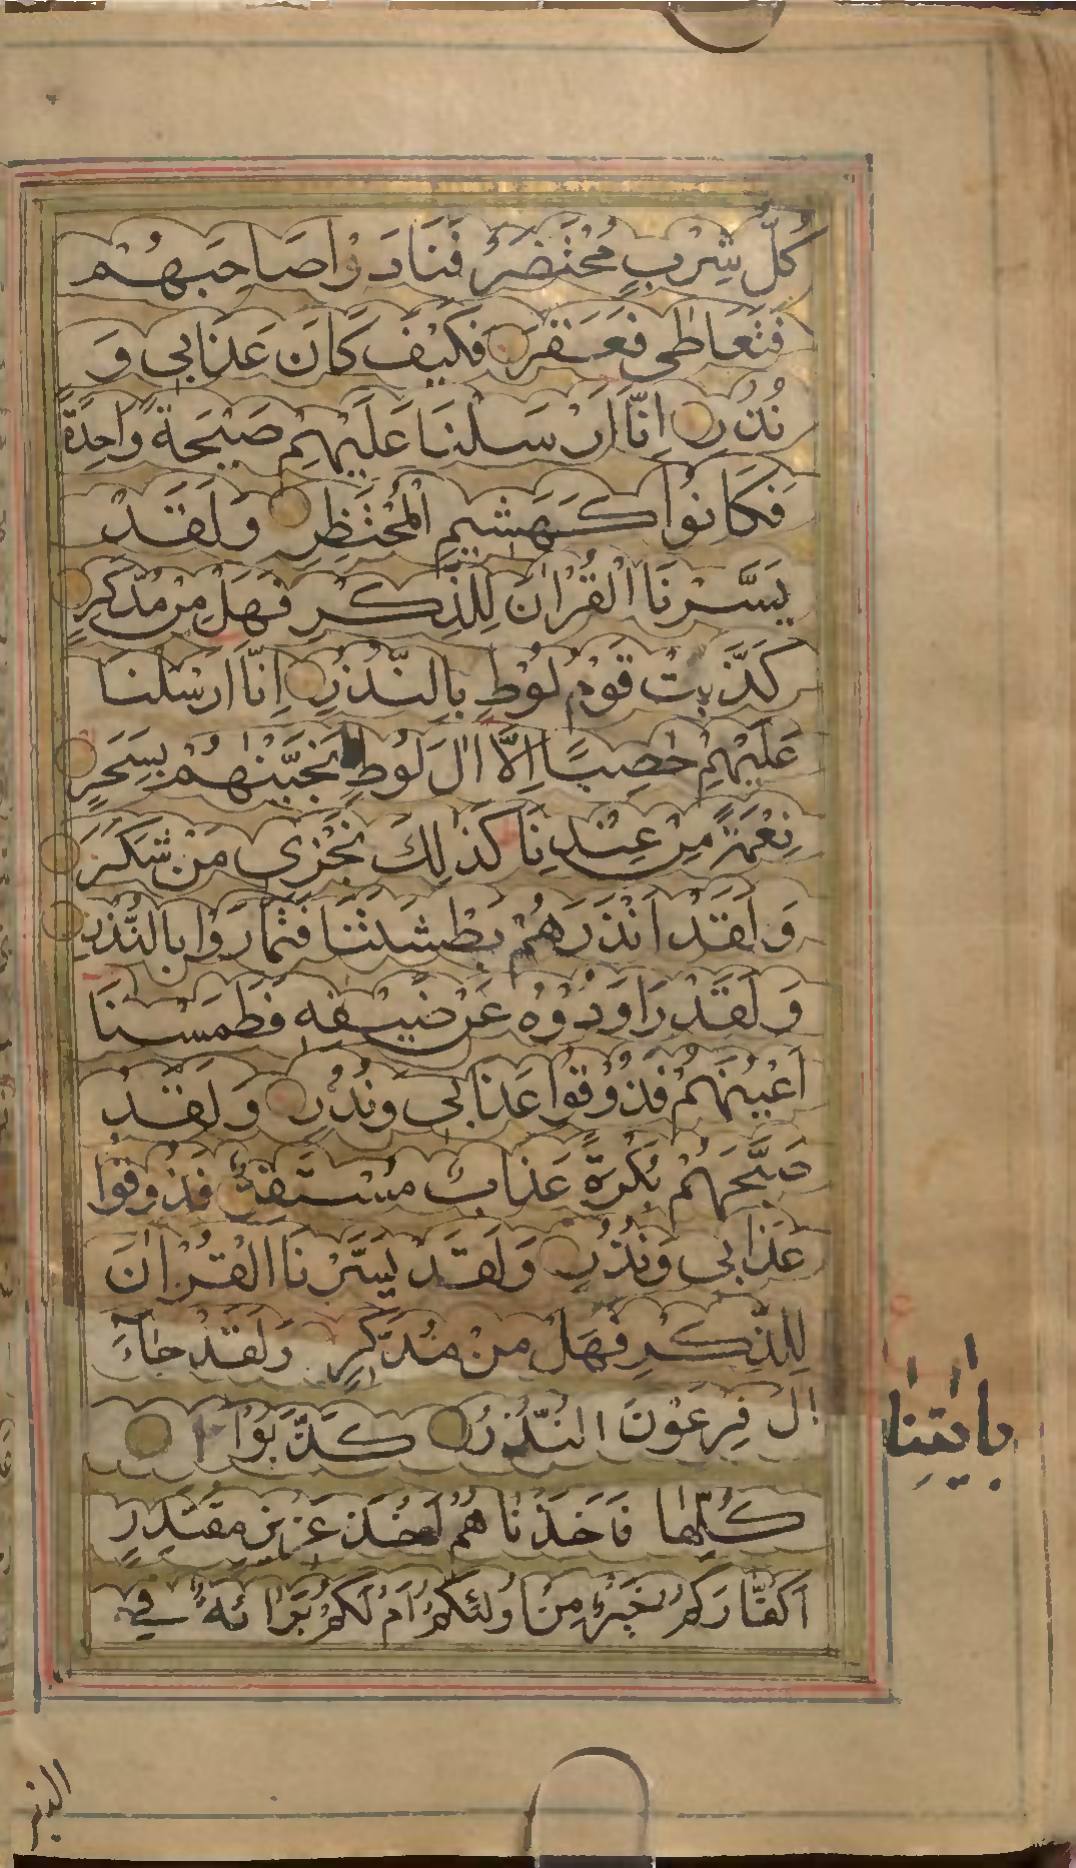 كُلُّ شِرْبٍ مُحْتَضَرٌ فَنَادَوْا صَاحِبَهُمْ
فَتَعَاطٰى فَعَقَرَ فَكَيْفَ كَانَ عَذَابِي وَ
نُذُرِ اِنَّا اَرْسَلْنَا عَلَيْهِمْ صَيْحَةً وَاحِدَةً
فَكَانُوا كَهَشِيمِ الْمُحْتَظِرِ وَلَقَدْ
يَسَّرْنَا الْقُرْاٰنَ لِلذِّكْرِ فَهَلْ مِنْ مُدَّكِرٍ
كَذَّبَتْ قَوْمُ لُوْطٍ بِالنُّذُرِ اِنَّا اَرْسَلْنَا
عَلَيْهِمْ حَاصِبًا اِلَّا اٰلَ لُوْطٍ نَجَّيْنٰهُمْ بِسَحَرٍ
نِعْمَةً مِنْ عِنْدِنَا كَذٰلِكَ نَجْزِي مَنْ شَكَرَ
وَلَقَدْ اَنْذَرَهُمْ بَطْشَتَنَا فَتَمَارَوْا بِالنُّذُرِ
وَلَقَدْ رَاوَدُوْهُ عَنْ ضَيْفِهِ فَطَمَسْنَا
اَعْيُنَهُمْ فَذُوْقُوا عَذَابِي وَنُذُرِ وَلَقَدْ
صَبَّحَهُمْ بُكْرَةً عَذَابٌ مُسْتَقِرٌّ فَذُوقُوا
عَذَابِي وَنُذُرِ وَلَقَدْ يَسَّرْنَا الْقُرْاٰنَ
لِلذِّكْرِ فَهَلْ مِنْ مُدَّكِرٍ وَلَقَدْ جَاءَ
اٰلَ فِرْعَوْنَ النُّذُرُ كَذَّبُوْا
بِاٰيٰتِنَا
كُلِّهَا فَاَخَذْنَاهُمْ اَخْذَ عَزِيزٍ مُقْتَدِرٍ
اَكُفَّارُكُمْ خَيْرٌ مِنْ اُولٰئِكُمْ اَمْ لَكُمْ بَرَاءَةٌ فِي
الزبر